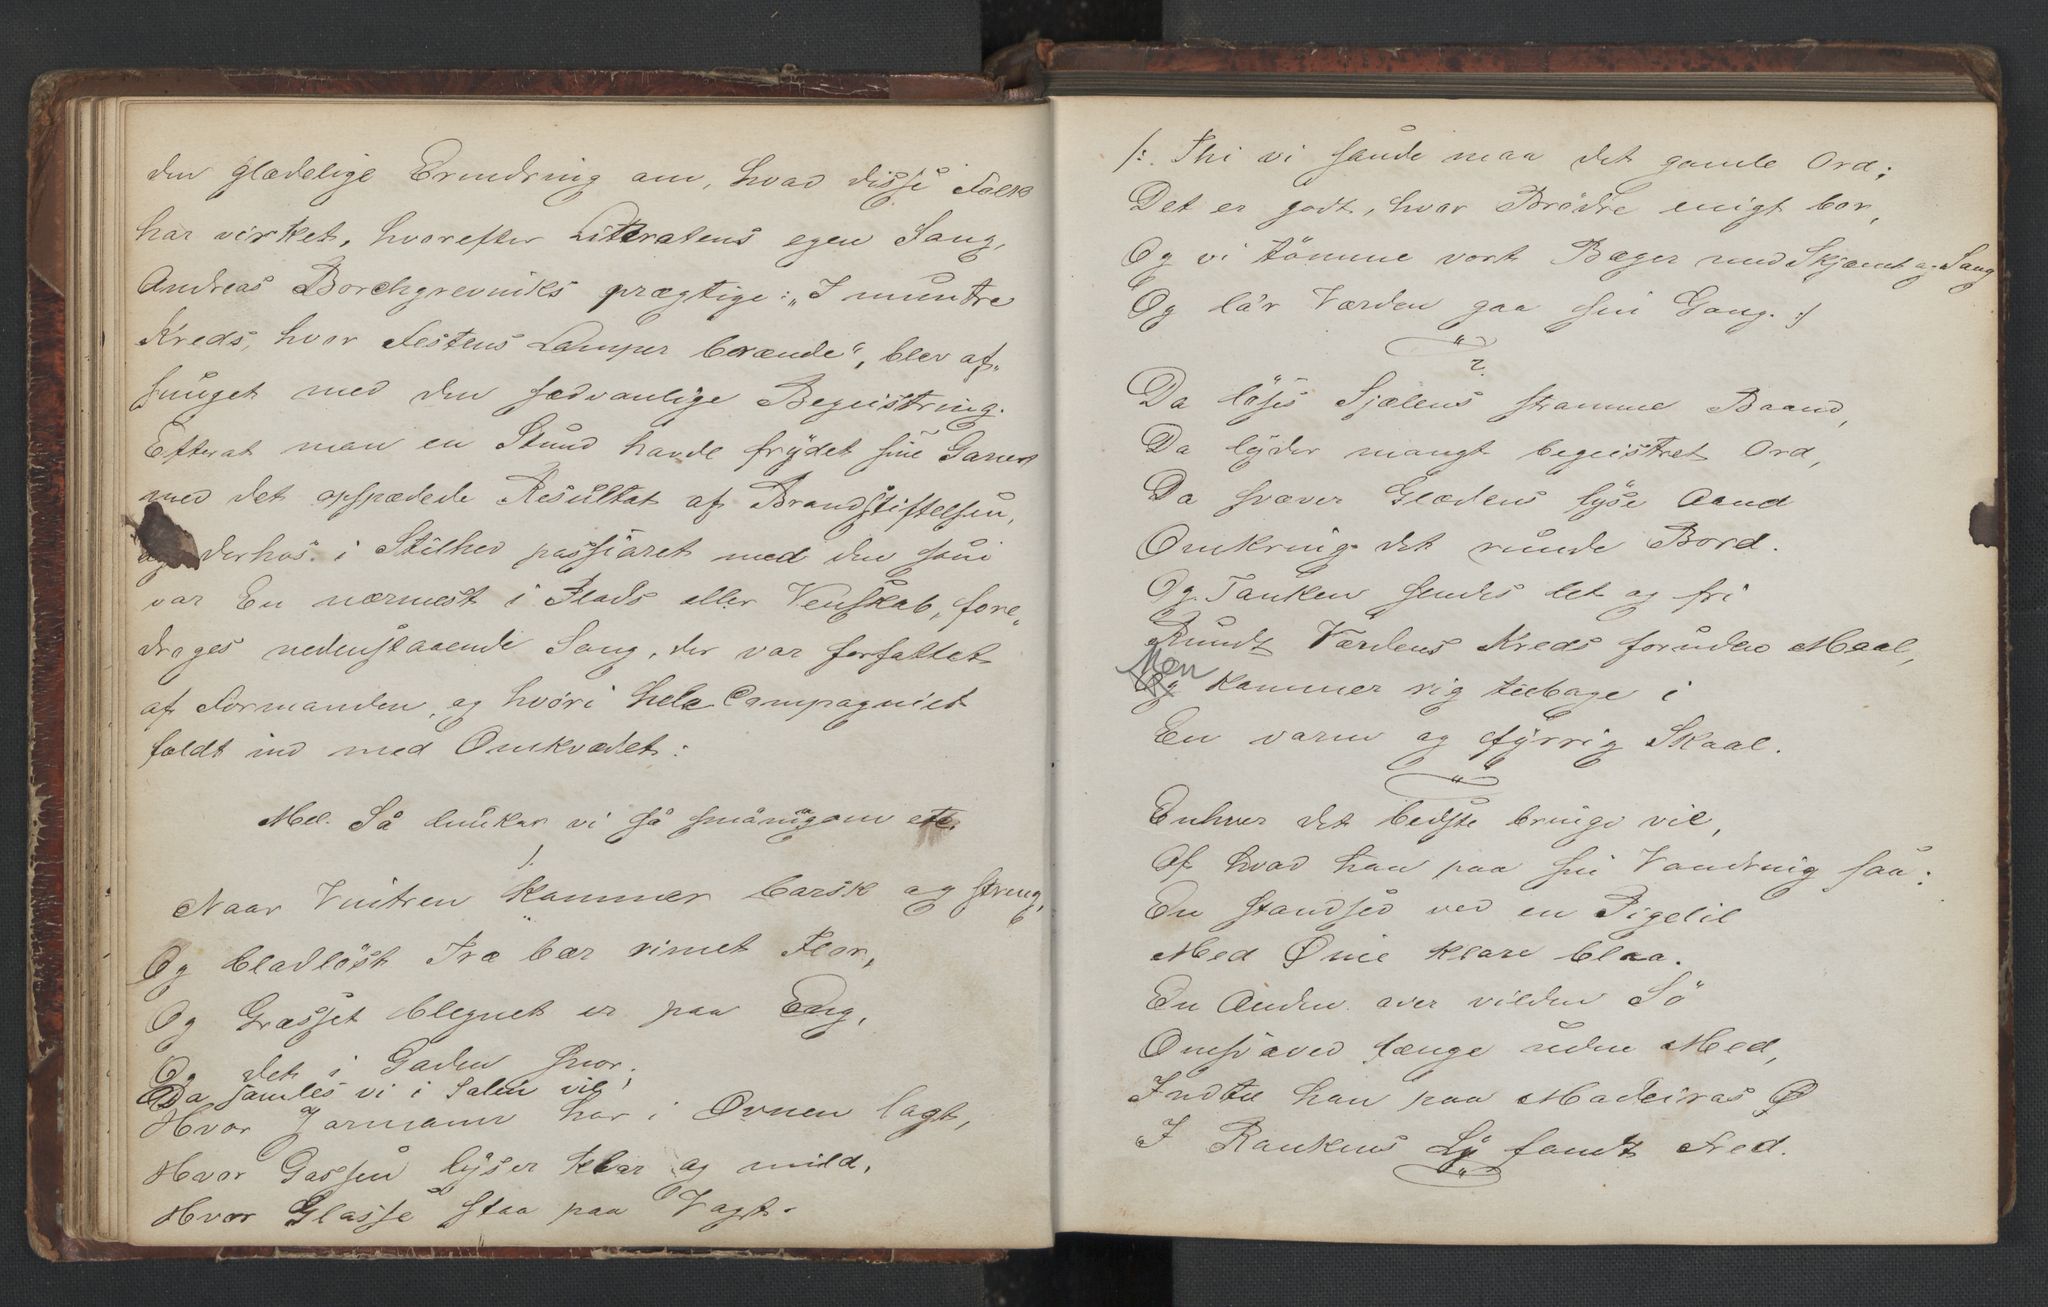 den glædelige Erindring om, hvad disse Folk
har virket, hvorefter Litteratens egen Sang,
Andreas Borchgrevinks prægtige: „I muntre
Kreds, hvor Festens Lamper brænde", blev af„
sunget med den sædvanlige Begeistring.
Efterat man en Stund havde frydet sine Ganer
med det opspædede Resultat af Brandstiftelsen,
og derhos i Stilhed passiaret med den som
var En nærmest i Plads eller Venskab, fore„
droges nedenstaaende Sang, der var forfattet
af Formanden, og hvori hele Compagniet
faldt ind med Omkvædet:
Mel. Så lunkar vi så småningom etc.
1.
Naar Vintren kommer barsk og streng,
Og bladløst Træ bær rimet Flor,
Og Græsset blegnet er paa Eng,
Og det i Gaden snor;
Da samles vi i Salen vil,
Hvor Jormann har i Ovnen lagt,
Hvor Gassen lyser klar og mild,
Hvor Glasse staa paa Vagt.
/: Thi vi sande maa det gamle Ord;
Det er godt, hvor Brødre enigt bor,
Og vi tømme vort Bæger med Skjæmt og Sang
Og la'r Verden gaa sin Gang. :/
2.
Da løses Sjælens stramme Baand,
Da lyder mangt begeistret Ord,
Da svæver Glædens lyse Aand
Omkring det runde Bord.
Og Tanken sendes let og fri
Rundt Verdens Kreds foruden Maal,
Men
Og kommer rig tilbage i
En varm og fyrrig Skaal.
Enhver det bedste bringe vil,
Af hvad han paa sin Vandring saa:
En standsed ved en Pigelil
Med Øine klare blaa.
En Anden over vilden Sö
Omsvæved længe uden Med,
Indtil han paa Madeiras Ø
I Rankens Ly fandt Fred.